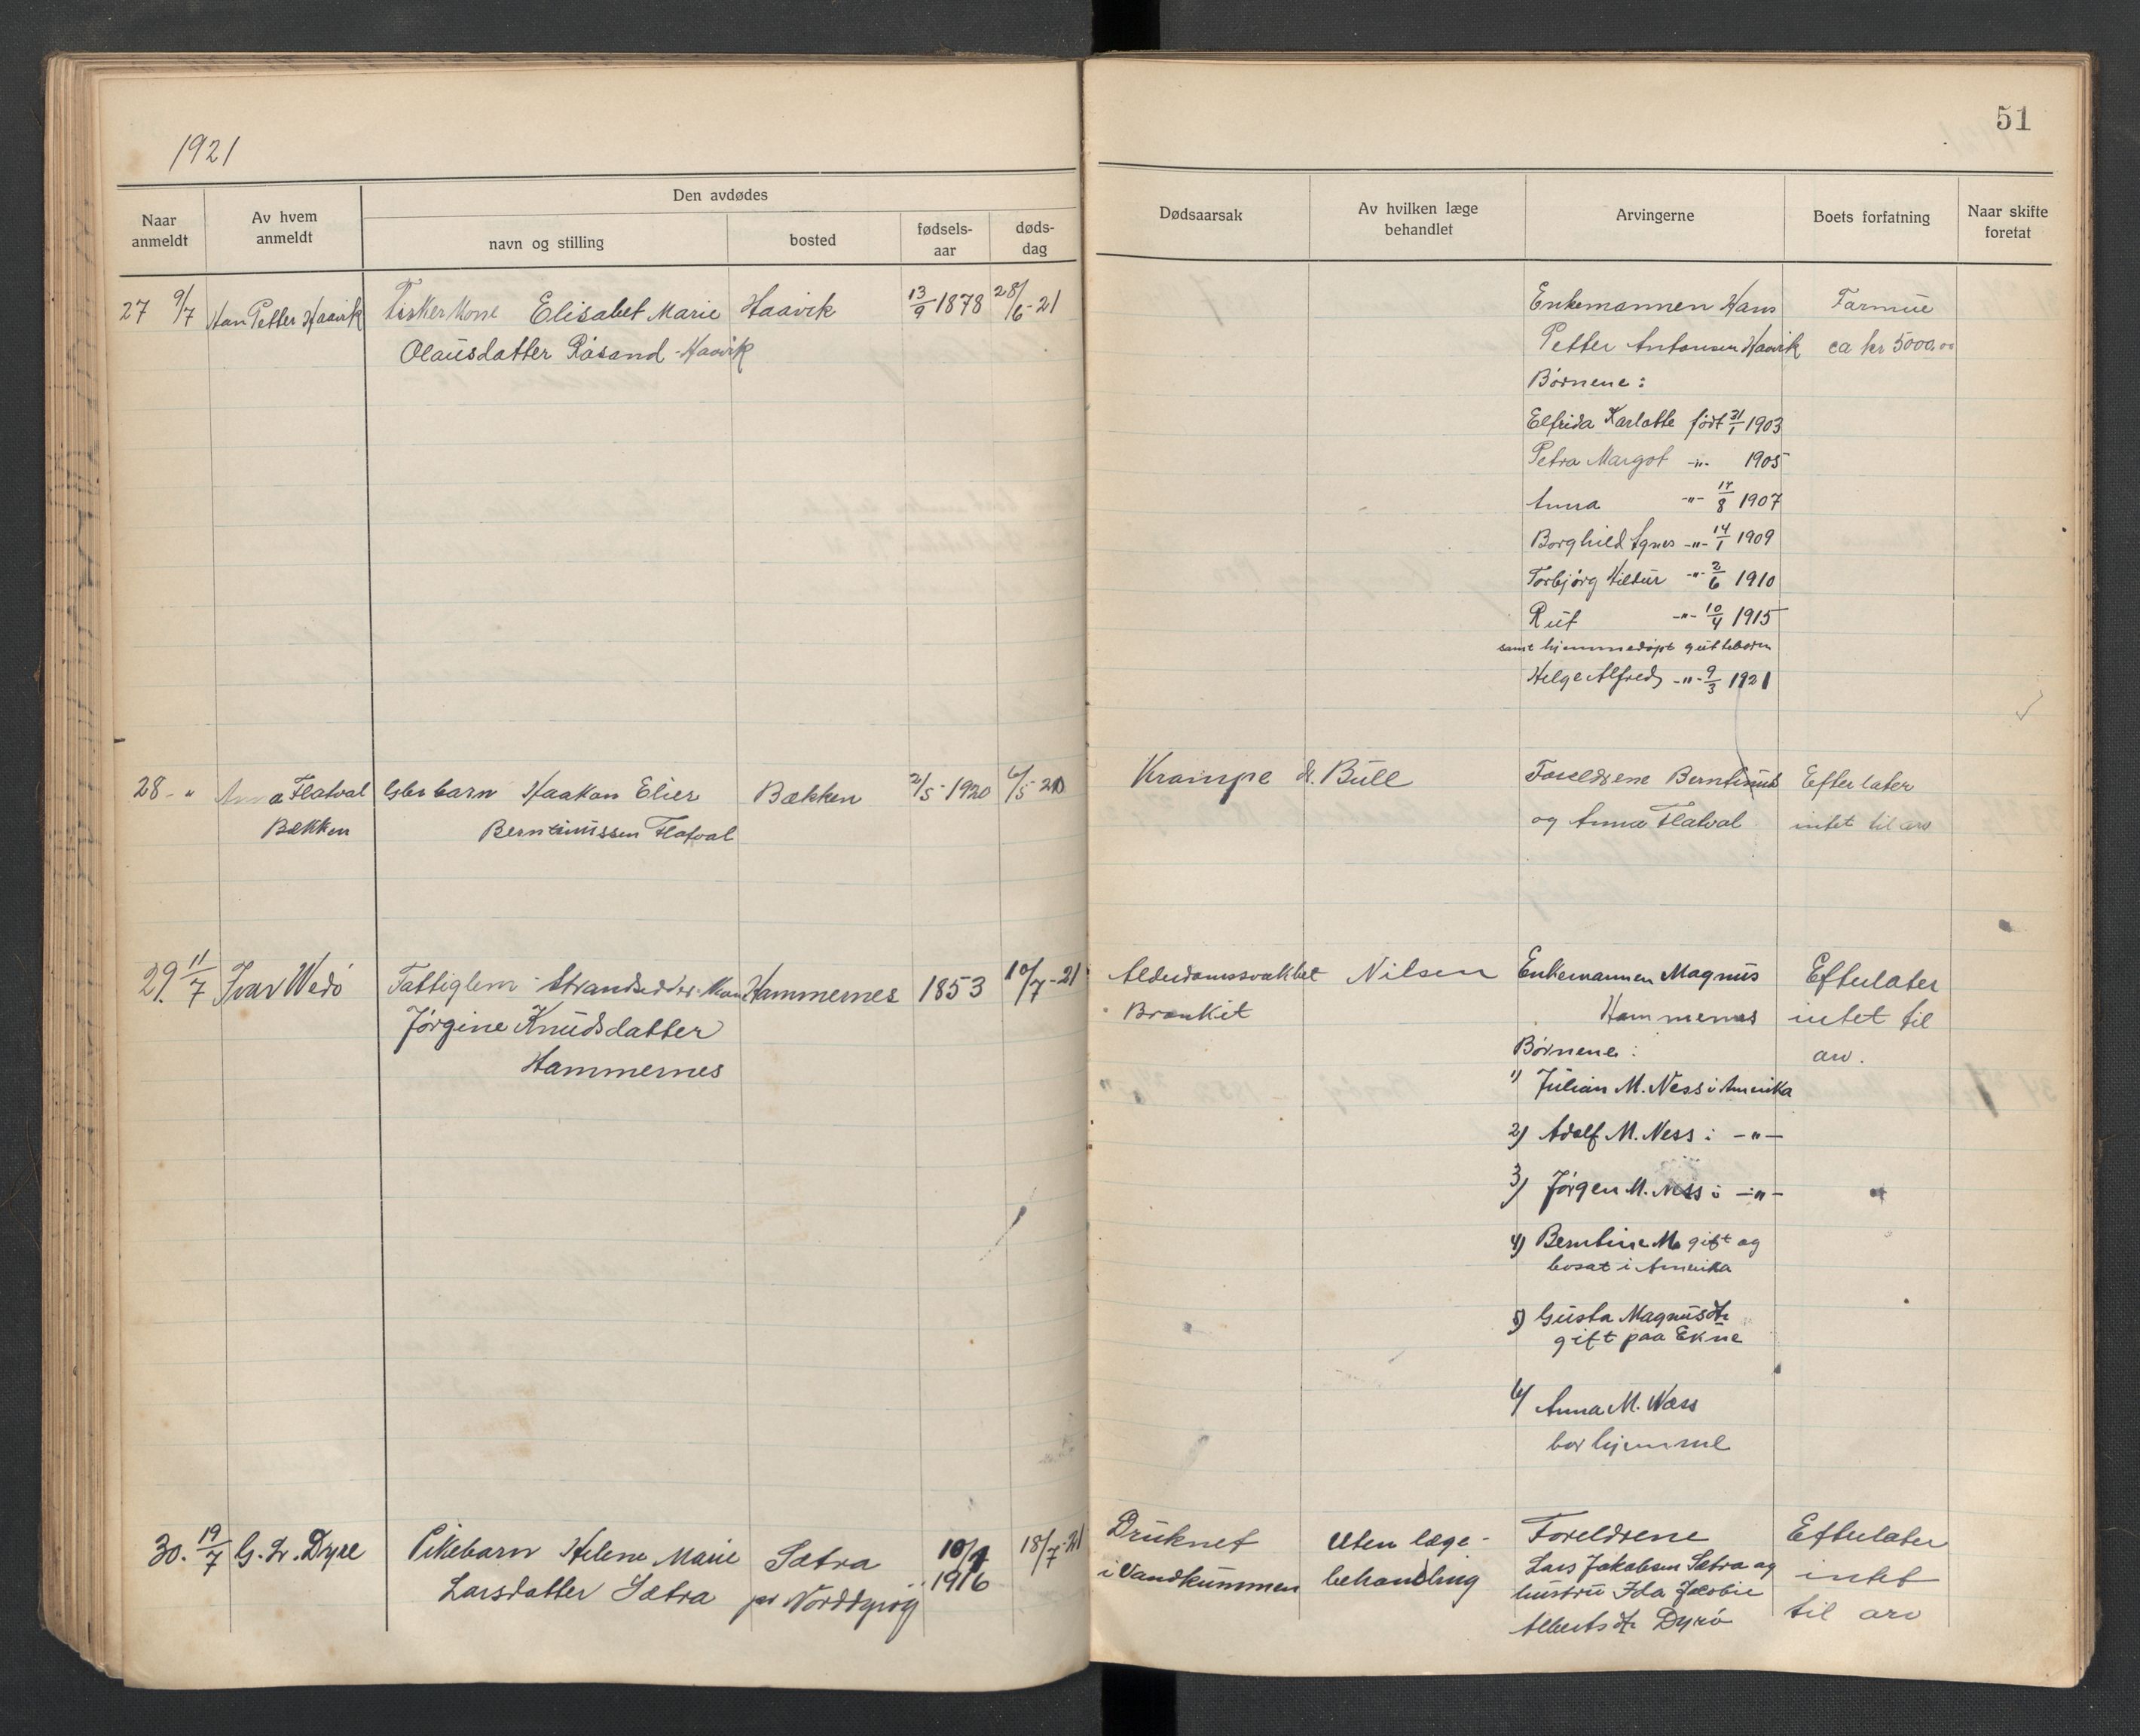 1921
51
Naar anmeldt
Av hvem anmeldt
Den avdødes
navn og stilling
bosted
fødsels-aar
døds-dag
Dødsaarsak
Av hvilken læge behandlet
Arvingerne
Boets forfatning
Naar skifte foretat
27 9/7 Han Petter Haavik
Fisker Kone Elisabet Marie
Olausdatter Råsand-Haavik
Haavik
13/9 1878
28/6-21
Enkemannen Hans
Petter Antonsen Haavik
Børnene:
Elfrida Karlotte født 21/1 1903
Petra Margot -"- 1905
Anna -"- 17/8 1907
Borghild Agnes -"- 14/1 1909
Torbjørg Hildur -"- 2/6 1910
Rut -"- 10/4 1915
samt hjemmedøpt guttebarn
Helge Alfred -"- 9/3 1921
Formue
ca kr 5000,00
28 - " Anna Flatval
Bækken
barn Haakon Elier
Berntinussen Flatval
Bækken
2/5-1920
6/5-20
Krampe
dr. Bull
Foreldrene Berntinus
og Anna Flatval
Efterlater
intet til arv
29. 11/7 Ivar Wedø
Fattiglem Strandsidder-Kone
Jørgine Knudsdatter
Hammernes
Hammernes
1853
10/7-21
Alderdomssvakhet
Bronkit
Nilsen
Enkemannen Magnus
Hammernes
Børnene:
1) Julian M. Ness i Amerika
2) Adolf M. Ness i -"-
3) Jørgen M. Ness i -"-
4) Berntine M. gift og
bosat i Amerika
5) Gusta Magnusdtr
gift paa Ekne
6) Anna M. Næss
bor hjemme
Efterlater
intet til
arv.
30. 19/7 G. L. Dyre
Pikebarn Helene Marie
Larsdatter Sætra
Sætra
pr Norddyrøy
10/1
1916
18/7-21
Druknet
i Vandkummen
Uten læge-
behandling
Foreldrene
Lars Jakobsen Sætra og
hustru Ida Jacobie
Albertsdtr Dyrø
Efterlater
intet
til arv